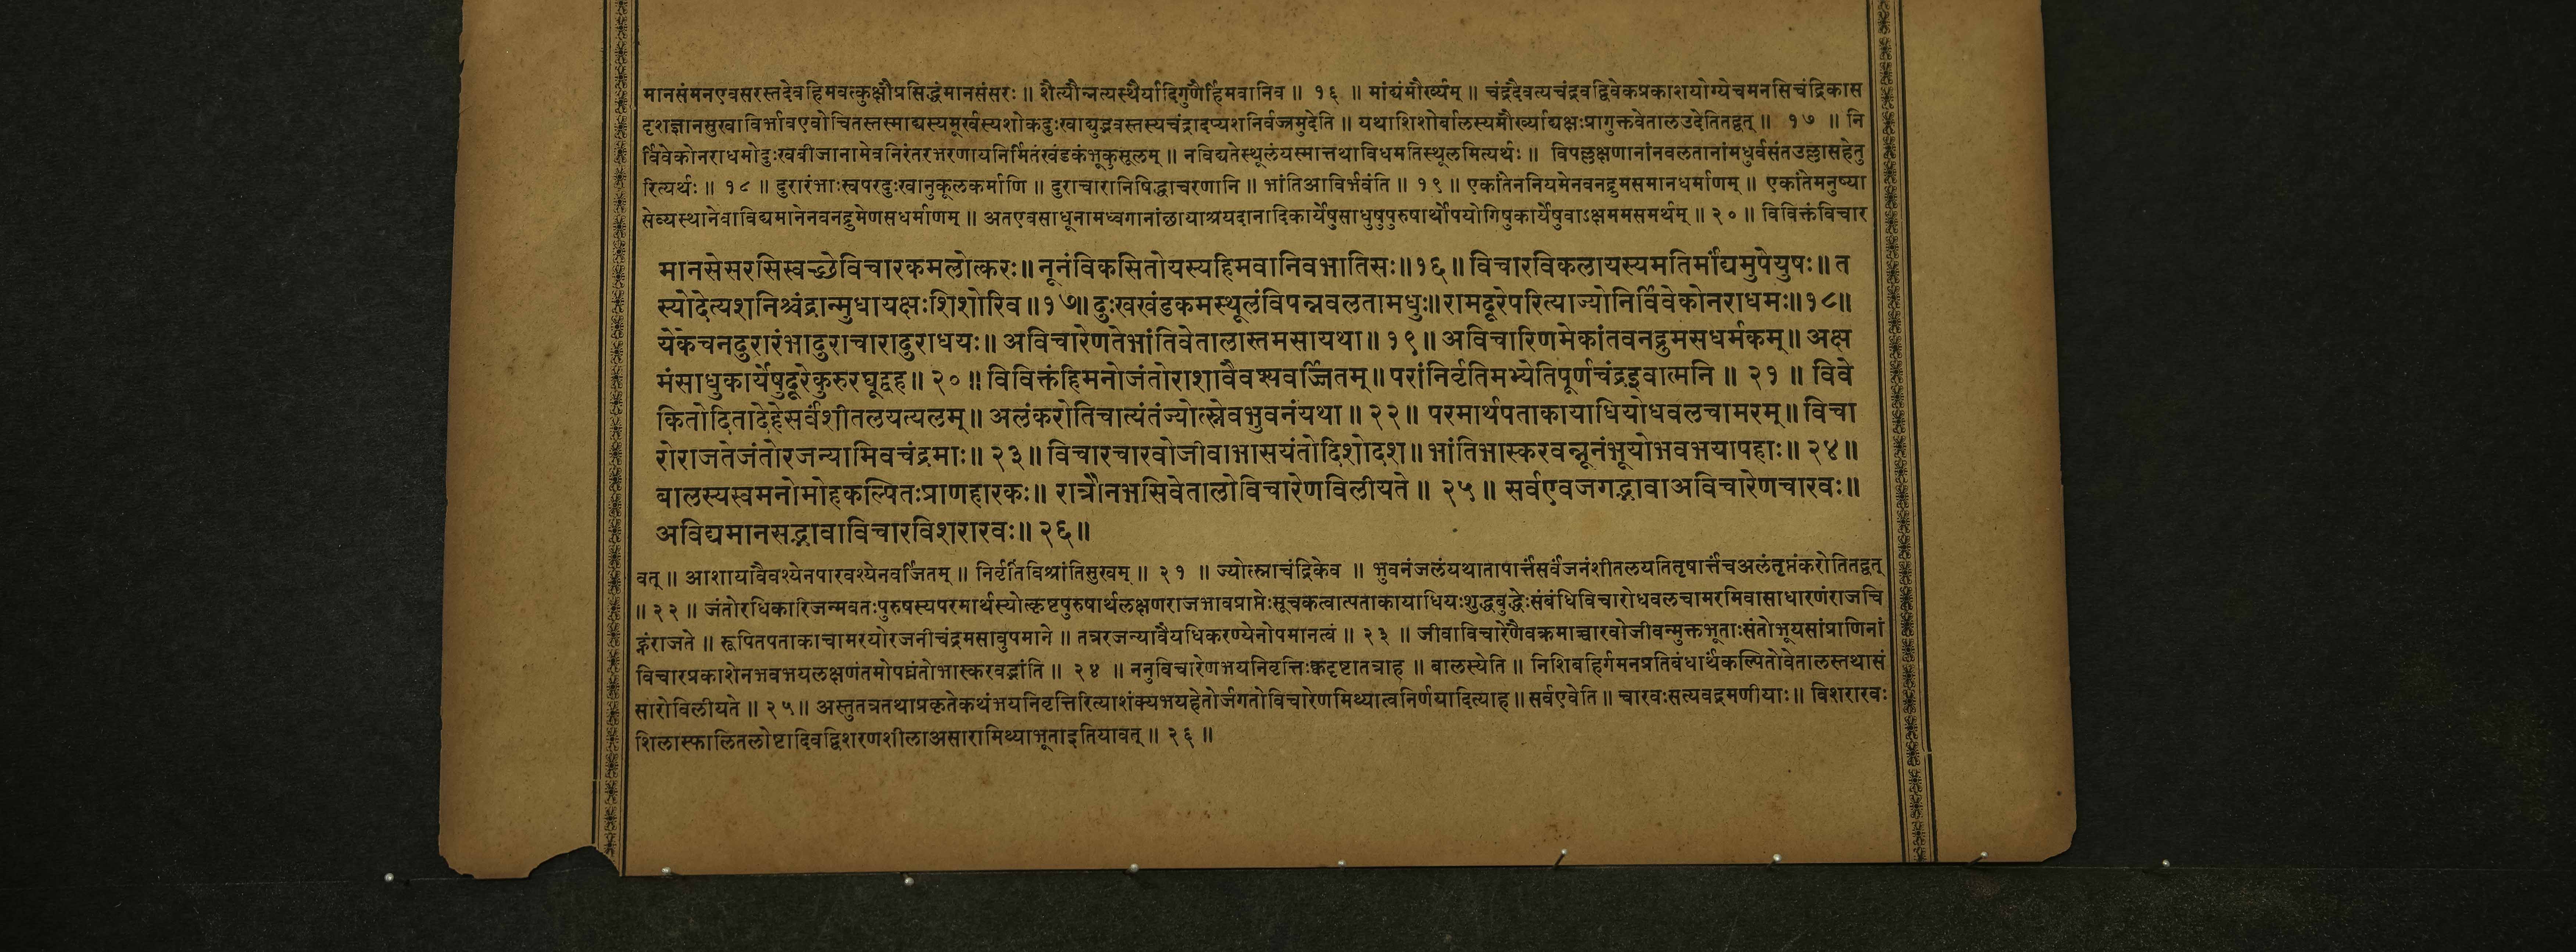 मानसंमनएवसरस्तदेवहिमवत्कुक्षौप्रसिद्धंमानसंसरः ॥ शैत्यौन्नत्यस्थैर्यादिगुणैर्हिमवानिव ॥ १६ ॥ मांद्यंमौर्ख्यम् ॥ चंद्रदैवत्यचंद्रवद्विवेकप्रकाशयोग्येचमनसिचंद्रिकास
दृशज्ञानसुखाविर्भावएवोचितस्तस्माद्यस्यमूर्खस्यशोकदुःखाद्युद्भवस्तस्यचंद्रादप्यशनिर्वज्रमुदेति ॥ यथाशिशोर्बालस्यमौर्ख्याद्यक्षःप्रागुक्तवेतालउदेतितद्वत् ॥ १७ ॥ नि
र्विवेकोनराधमोदुःखबीजानामेवनिरंतरभरणायनिर्मितंखंडकंभूकुसूलम् ॥ नविद्यतेस्थूलंयस्मात्तथाविधमतिस्थूलमित्यर्थः ॥ विपल्लक्षणानांनवलतानांमधुर्वसंतउल्लासहेतु
रित्यर्थः ॥ १८ ॥ दुरारंभाःस्वपरदुःखानुकूलकर्माणि ॥ दुराचारानिषिद्धाचरणानि ॥ भांतिआविर्भवंति ॥ १९ ॥ एकांतेननियमेनवनद्रुमसमानधर्माणम् ॥ एकांतेमनुष्या
सेव्यस्थानेवाविद्यमानेनवनद्रुमेणसधर्माणम् ॥ अतएवसाधूनामध्वगानांछायाश्रयदानादिकार्येषुसाधुषुपुरुषार्थोपयोगिषुकार्येषुवाऽक्षममसमर्थम् ॥ २० ॥ विविक्तंविचार
मानसेसरसिस्वच्छेविचारकमलोत्करः॥ नूनंविकसितोयस्यहिमवानिवभातिसः॥१६॥ विचारविकलायस्यमतिर्मांद्यमुपेयुषः॥ त
स्योदेत्यशनिश्चंद्रान्मुधायक्षःशिशोरिव॥१७॥ दुःखखंडकमस्थूलंविपन्नवलतामधुः॥रामदूरेपरित्याज्योनिर्विवेकोनराधमः॥१८॥
येकेचनदुरारंभादुराचारादुराधयः॥ अविचारेणतेभांतिवेतालास्तमसायथा॥ १९॥ अविचारिणमेकांतवनद्रुमसधर्मकम्॥ अक्ष
मंसाधुकार्येषुदूरेकुरुरघूद्वह॥ २०॥ विविक्तंहिमनोजंतोराशावैवश्यवर्जितम्॥परांनिर्वृतिमभ्येतिपूर्णचंद्रइवात्मनि॥ २१ ॥ विवे
कितोदितादेहेसर्वंशीतलयत्यलम्॥ अलंकरोतिचात्यंतंज्योत्स्नेवभुवनंयथा॥ २२॥ परमार्थपताकायाधियोधवलचामरम्॥ विचा
रोराजतेजंतोरजन्यामिवचंद्रमाः॥ २३॥ विचारचारवोजीवाभासयंतोदिशोदश॥ भांतिभास्करवन्नूनंभूयोभवभयापहाः॥ २४॥
बालस्यस्वमनोमोहकल्पितःप्राणहारकः॥ रात्रौनभसिवेतालोविचारेणविलीयते॥ २५॥ सर्वएवजगद्भावाअविचारेणचारवः॥
अविद्यमानसद्भावाविचारविशरारवः॥ २६॥
वत् ॥ आशायावैवश्येनपारवश्येनवर्जितम् ॥ निर्वृतिंविश्रांतिसुखम् ॥ २१ ॥ ज्योत्स्नाचंद्रिकेव ॥ भुवनंजलंयथातापार्त्तंसर्वंजनंशीतलयतितृषार्त्तंचअलंतृप्तंकरोतितद्वत्
॥ २२ ॥ जंतोरधिकारिजन्मवतःपुरुषस्यपरमार्थस्योत्कृष्टपुरुषार्थलक्षणराजभावप्राप्तेःसूचकत्वात्पताकायाधियःशुद्धबुद्धेःसंबंधिविचारोधवलचामरमिवासाधारणंराजचि
ह्नंराजते ॥ रूपितपताकाचामरयोरजनीचंद्रमसावुपमाने ॥ तत्ररजन्यावैयधिकरण्येनोपमानत्वं ॥ २३ ॥ जीवाविचारेणैवक्रमाच्चारवोजीवन्मुक्तभूताःसंतोभूयसांप्राणिनां
विचारप्रकाशेनभवभयलक्षणंतमोपघ्नंतोभास्करवद्भांति ॥ २४ ॥ ननुविचारेणभयनिवृत्तिःक्वदृष्टातत्राह ॥ बालस्येति ॥ निशिबहिर्गमनप्रतिबंधार्थंकल्पितोवेतालस्तथासं
सारोविलीयते ॥ २५॥ अस्तुतत्रतथाप्रकृतेकथंभयनिवृत्तिरित्याशंक्यभयहेतोर्जगतोविचारेणमिथ्यात्वनिर्णयादित्याह॥ सर्वएवेति॥ चारवःसत्यवद्रमणीयाः॥ विशरारवः
शिलास्फालितलोष्टादिवद्विशरणशीलाअसारामिथ्याभूताइतियावत् ॥ २६ ॥